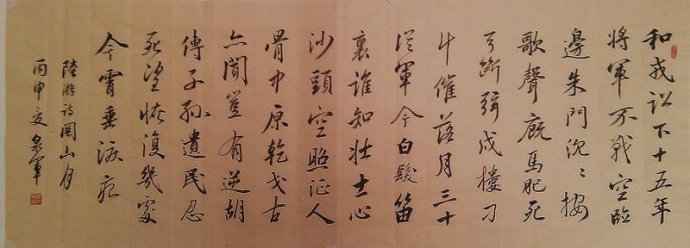 和戎詔下十五年
將軍不戰空臨
邊朱門沈〻按
歌聲廄馬肥死
弓斷弦戍樓刁
斗催落月三十
從軍今白髮笛
裏誰知壯士心
沙頭空照征人
骨中原乾戈古
亦聞豈有逆胡
傳子孫遺民忍
死望恢復幾處
今霄垂淚痕
陸游詩關山月
丙申 泉軍